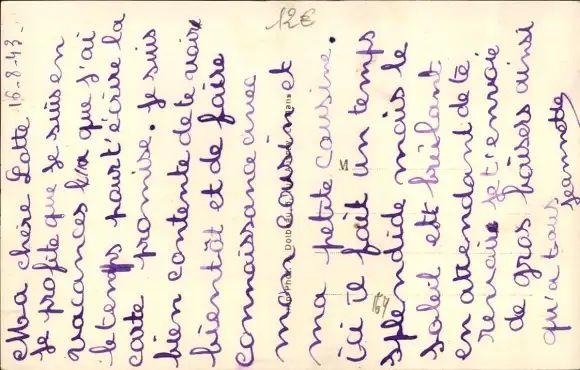 Ma chère Lotte 16-8-43-
Je profite que je suis en
vacances que j'ai
le temps pour t'écrire la
carte promise. Je suis
bien contente de te voir
bientôt et de faire
connaissance avec
mon cousin et
ma petite cousine.
ici il fait un temps
splendide mais le
soleil est brûlant
en attendant de te
revoir je t'envoie
de gros baisers ainsi
qu'a tous
Jeannette
12€
M
164